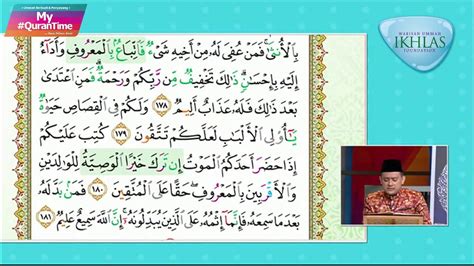 My
#QuranTime
WARISAN UMMAH
IKHLAS
FOUNDATION
بِٱلْأُنثَىٰ فَمَنْ عُفِىَ لَهُۥ مِنْ أَخِيهِ شَىْءٌ فَٱتِّبَاعٌۢ بِٱلْمَعْرُوفِ وَأَدَآءٌ
إِلَيْهِ بِإِحْسَٰنٍ ذَٰلِكَ تَخْفِيفٌ مِّن رَّبِّكُمْ وَرَحْمَةٌ فَمَنِ ٱعْتَدَىٰ
بَعْدَ ذَٰلِكَ فَلَهُۥ عَذَابٌ أَلِيمٌ ١٧٨ وَلَكُمْ فِى ٱلْقِصَاصِ حَيَوٰةٌ
يَٰٓأُو۟لِى ٱلْأَلْبَٰبِ لَعَلَّكُمْ تَتَّقُونَ ١٧٩ كُتِبَ عَلَيْكُمْ
إِذَا حَضَرَ أَحَدَكُمُ ٱلْمَوْتُ إِن تَرَكَ خَيْرًا ٱلْوَصِيَّةُ لِلْوَٰلِدَيْنِ
وَٱلْأَقْرَبِينَ بِٱلْمَعْرُوفِ حَقًّا عَلَى ٱلْمُتَّقِينَ ١٨٠ فَمَنۢ بَدَّلَهُۥ
بَعْدَ مَا سَمِعَهُۥ فَإِنَّمَآ إِثْمُهُۥ عَلَى ٱلَّذِينَ يُبَدِّلُونَهُۥٓ إِنَّ ٱللَّهَ سَمِيعٌ عَلِيمٌ ١٨١